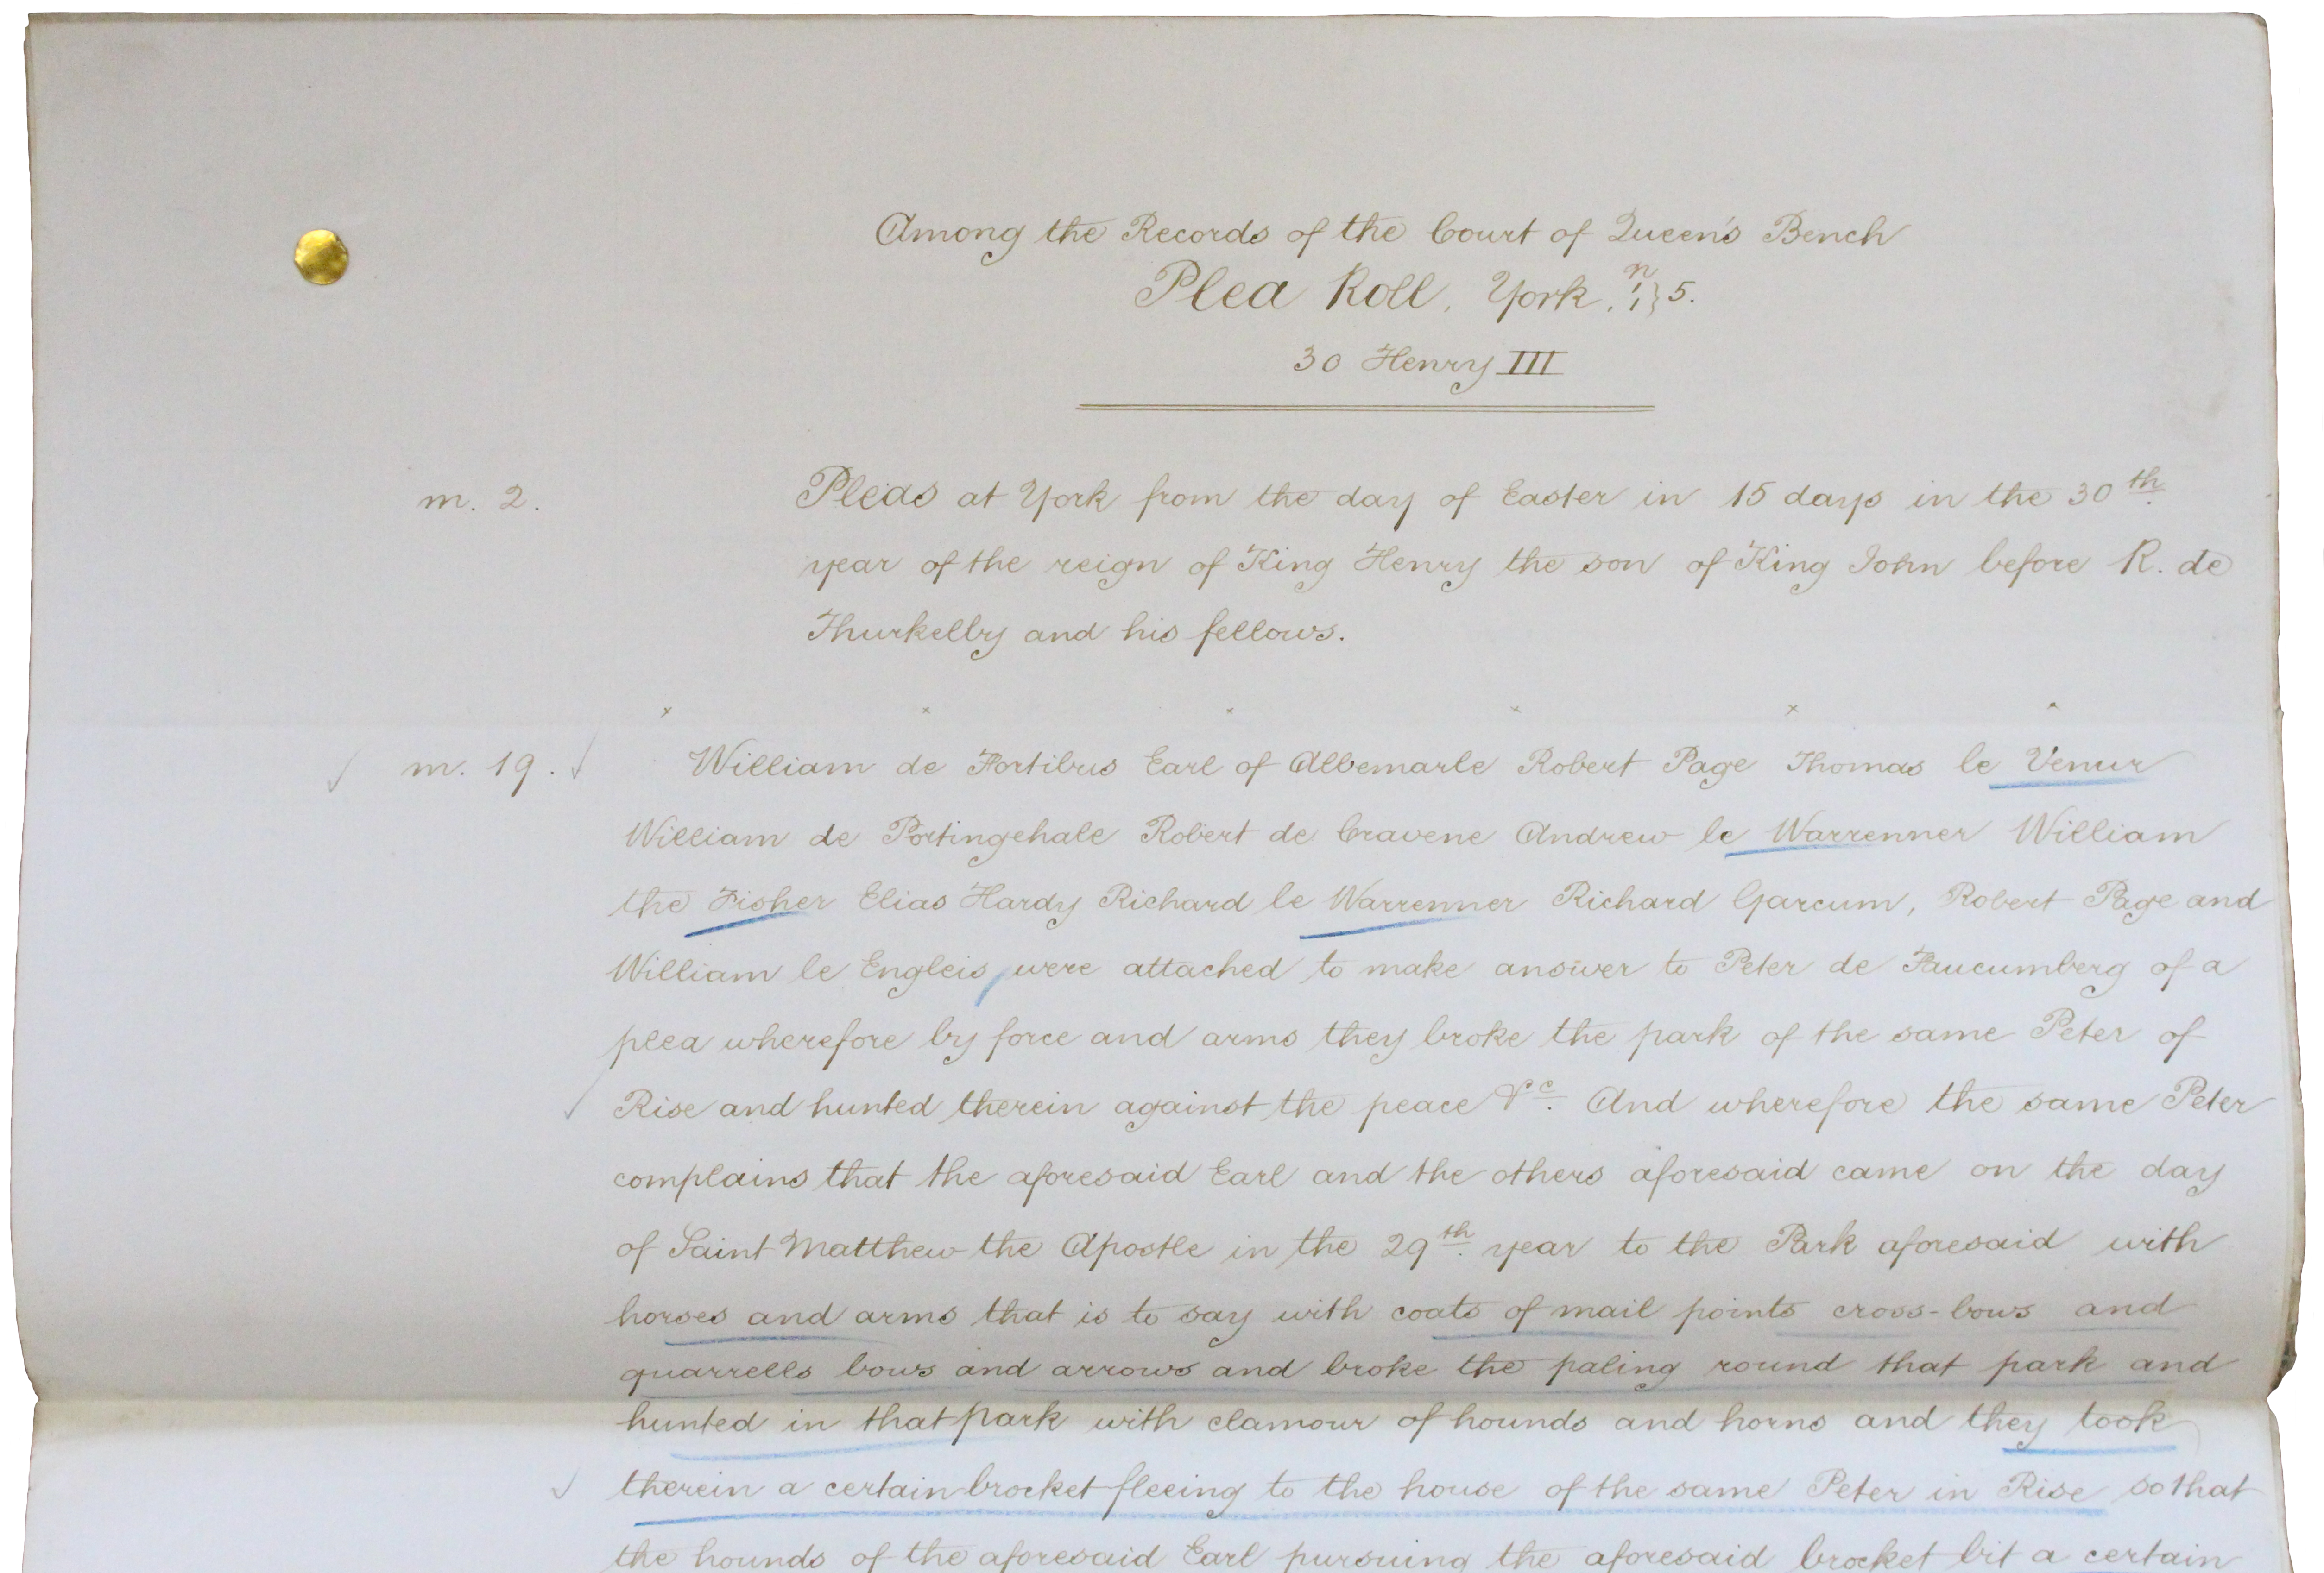 Among the Records of the Court of Queen's Bench
Plea Roll, York. n 1 } 5.
30 Henry III
m. 2. Pleas at York from the day of Easter in 15 days in the 30th
year of the reign of King Henry the son of King John before R. de
Thurkelby and his fellows.
m. 19. William de Fortibus Earl of Albemarle Robert Page Thomas le Venur
William de Portingehale Robert de Cravene Andrew le Warrenner William
the Fisher Elias Hardy Richard le Warrenner Richard Garcum, Robert Page and
William le Engleis were attached to make answer to Peter de Faucumberg of a
plea wherefore by force and arms they broke the park of the same Peter of
Rise and hunted therein against the peace &c. And wherefore the same Peter
complains that the aforesaid Earl and the others aforesaid came on the day
of Saint Matthew the Apostle in the 29th year to the Park aforesaid with
horses and arms that is to say with coats of mail points cross-bows and
quarrells bows and arrows and broke the paling round that park and
hunted in that park with clamour of hounds and horns and they took
therein a certain brocket fleeing to the house of the same Peter in Rise so that
the hounds of the aforesaid Earl pursuing the aforesaid brocket bit a certain